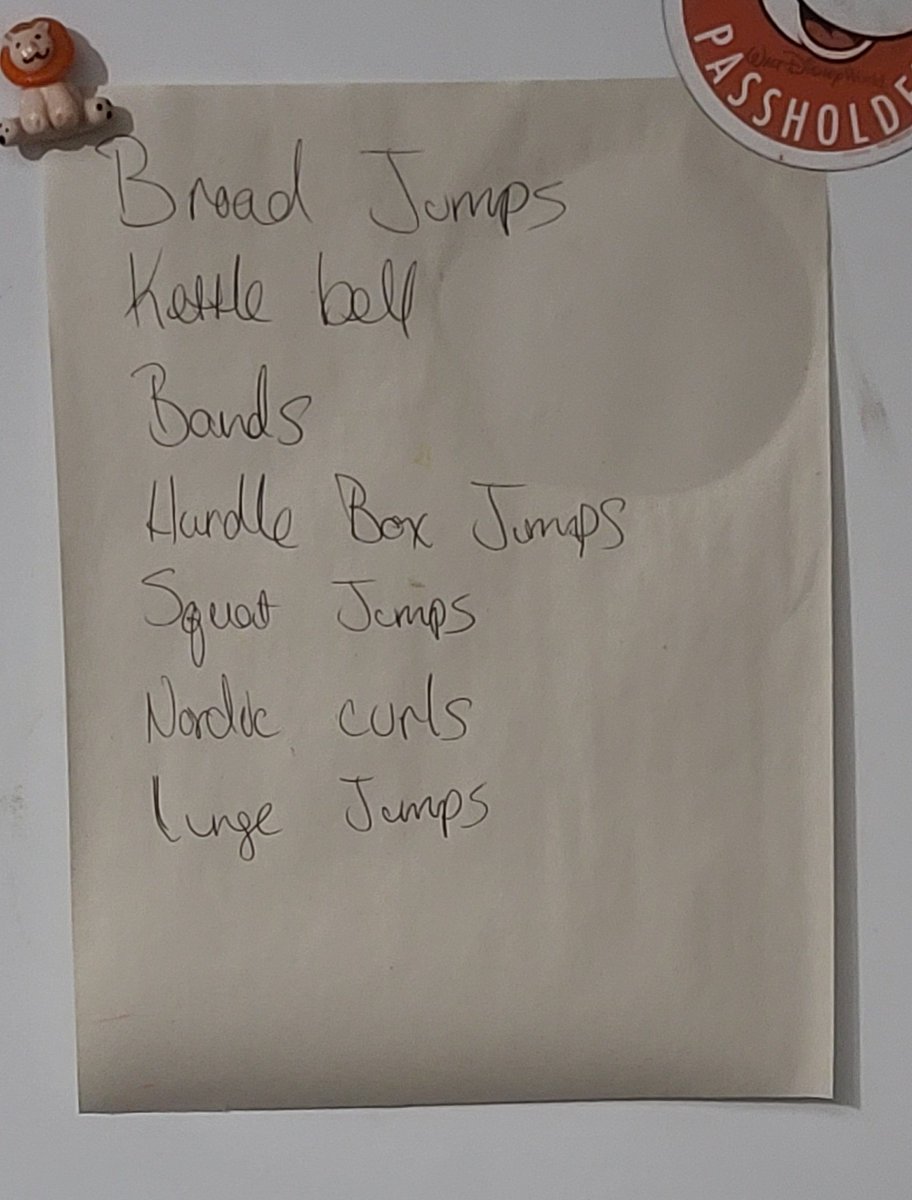 PASSHOLDE
Walt Disney World
Broad Jumps
Kettle bell
Bands
Hurdle Box Jumps
Squat Jumps
Nordic curls
lunge Jumps